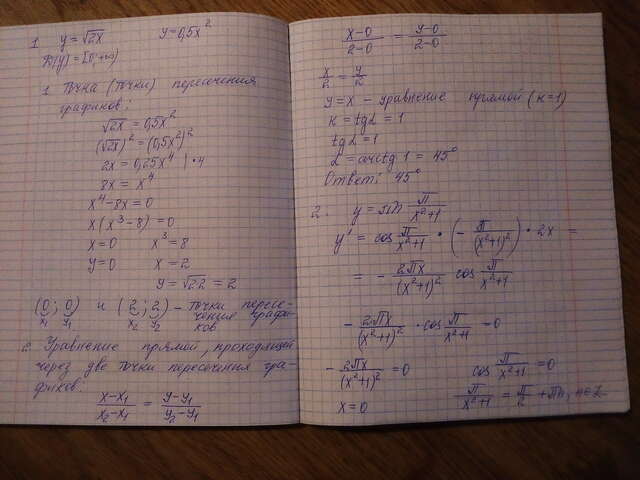 1 y=√2x y=0,5x²
R(y)=[0;+∞)
1. Точка (точки) пересечения
графиков:
√2x = 0,5x²
(√2x)² = (0,5x²)²
2x = 0,25x⁴ | • 4
8x = x⁴
x⁴-8x=0
x(x³-8)=0
x=0 x³=8
y=0 x=2
y=√2·2 = 2
(0;0) и (2;2) - точки пересе-
x₁ y₁ x₂ y₂ чения графи-
ков
2. Уравнение прямой, проходящей
через две точки пересечения гра-
фиков:
(x-x₁)/(x₂-x₁) = (y-y₁)/(y₂-y₁)
(x-0)/(2-0) = (y-0)/(2-0)
x/2 = y/2
y=x - уравнение прямой (к=1)
к = tgα = 1
tgα = 1
α = arctg 1 = 45°
Ответ: 45°
2. y = sin π/(x²+1)
y' = cos π/(x²+1) • (- π/(x²+1)²) • 2x =
= - 2πx/(x²+1)² cos π/(x²+1)
- 2πx/(x²+1)² • cos π/(x²+1) = 0
- 2πx/(x²+1)² = 0 cos π/(x²+1) = 0
x=0 π/(x²+1) = π/2 + πn, n∈Z